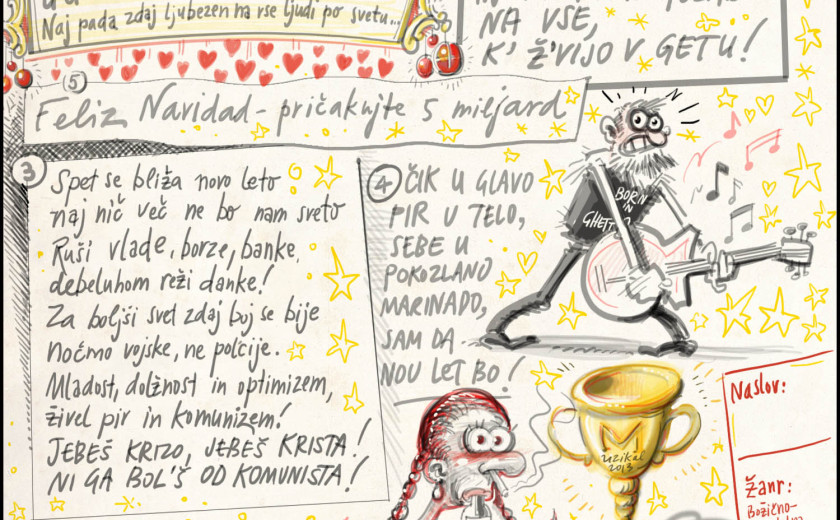 Naj pada zdaj ljubezen na vse ljudi po svetu...
NA VSE,
K' Ž'VIJO V GETU!
5
Feliz Navidad - pričakujte 5 miljard
3
Spet se bliža novo leto
naj nič več ne bo nam sveto
Ruši vlade, borze, banke,
debeluhom reži danke!
Za boljši svet zdaj boj se bije
nočmo vojske, ne policije.
Mladost, dolžnost in optimizem,
živel pir in komunizem!
JEBEŠ KRIZO, JEBEŠ KRISTA!
NI GA BOL'Š OD KOMUNISTA!
4
ČIK U GLAVO
PIR U TELO,
SEBE U
POKOZLANO
MARINADO,
SAM DA
NOU LET BO!
BORN
IN
GHETTO
M
uzikal
2013
Naslov:
Žanr:
Božično-